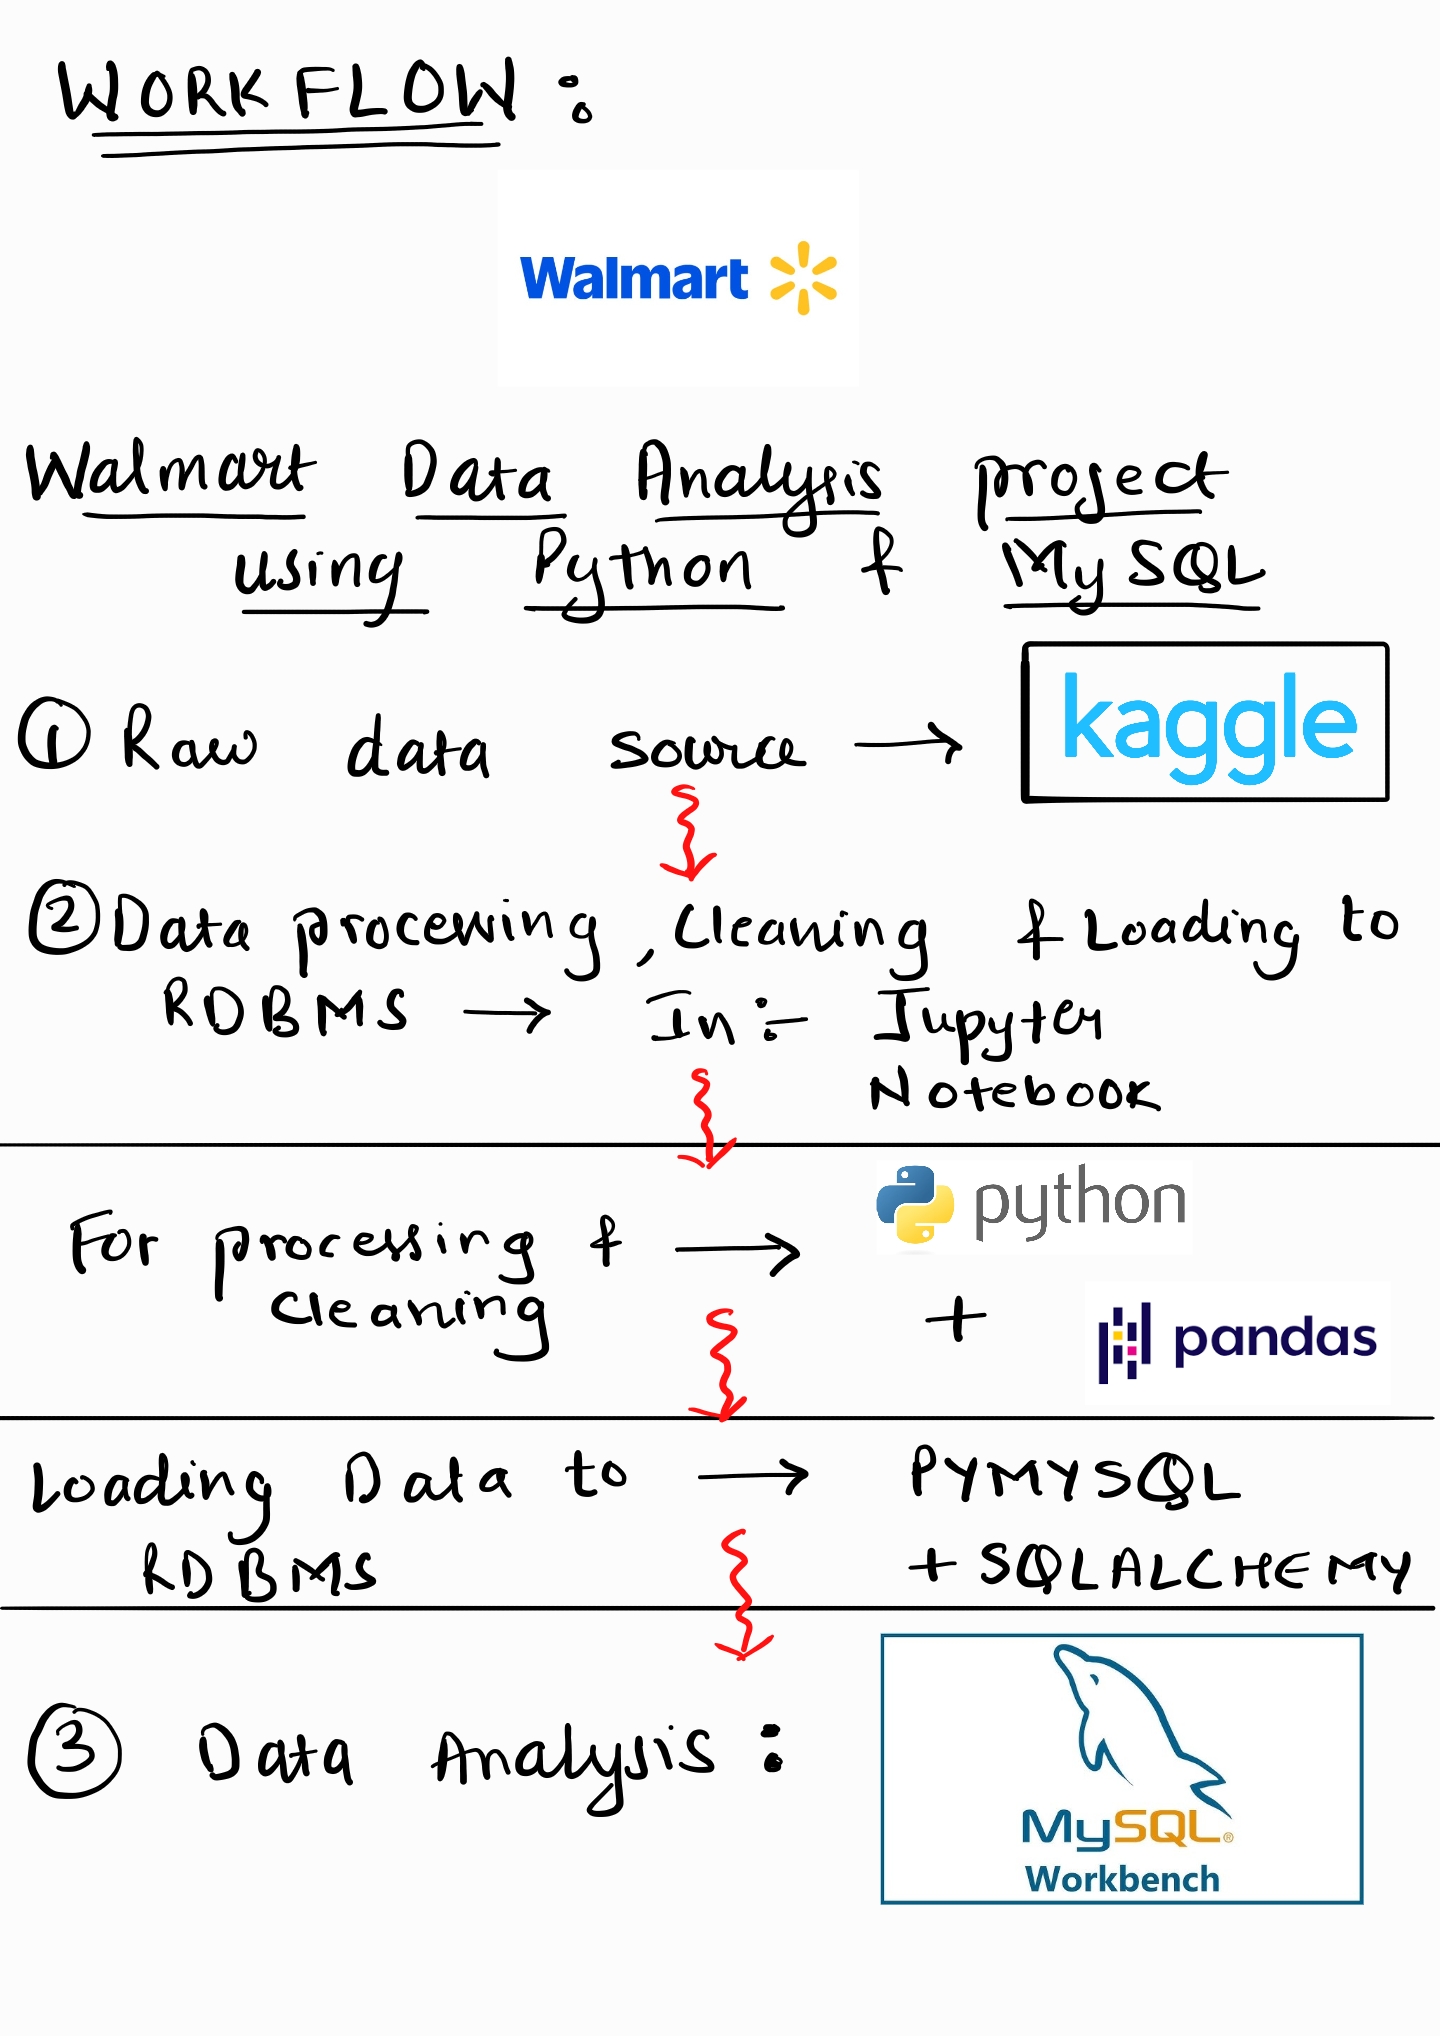 WORKFLOW:
Walmart
Walmart Data Analysis project
using Python & MySQL
① Raw data source → kaggle
② Data processing, Cleaning & Loading to
RDBMS → In:- Jupyter
Notebook
python
For processing & →
Cleaning
+ pandas
Loading Data to → PYMYSQL
RDBMS + SQLALCHEMY
③ Data Analysis:
MySQL®
Workbench